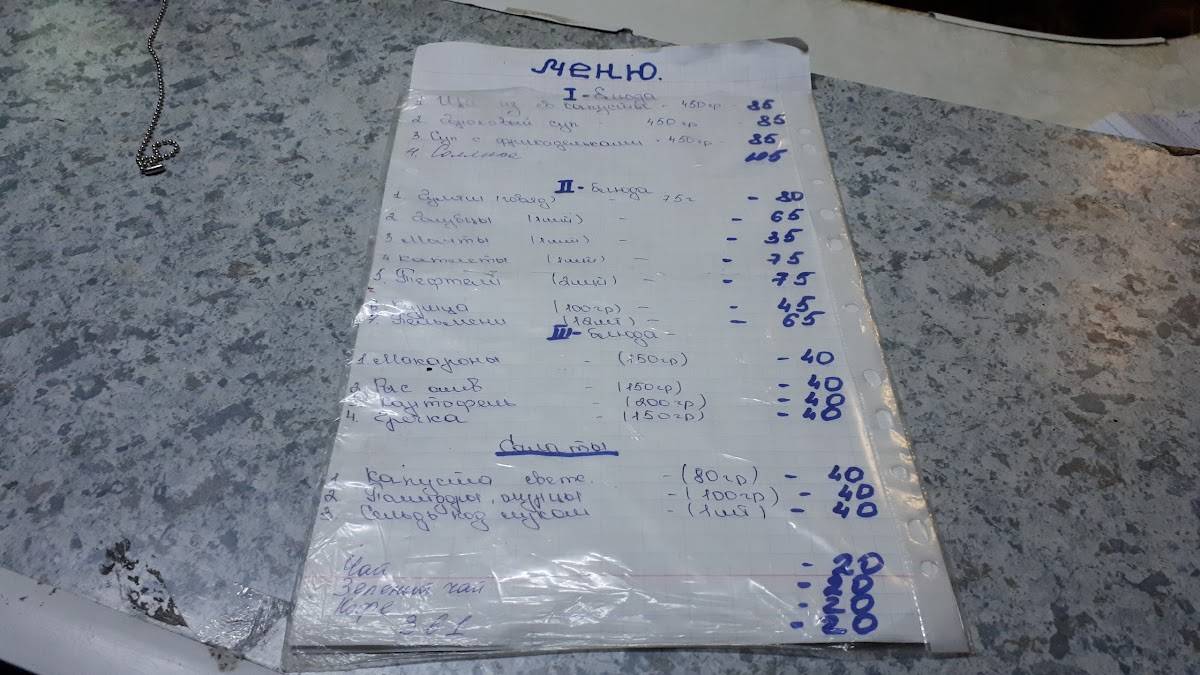 Меню.
I - блюда
1. Щи из св капусты - 450гр - 85
2. Гороховый суп - 450гр - 85
3. Суп с фрикадельками - 450гр - 85
4. Солянка 105
II - Блюда
1. Гуляш (говяд) - 75г - 80
2 Голубцы (1шт) - - 65
3 Манты (1шт) - - 35
4 Котлеты (1шт) - - 75
5. Тефтели (2шт) - - 75
6. Курица (100гр) - - 45
7. Пельмени (18шт) - - 65
III - Блюда -
1. Макароны - (150гр) - 40
2 Рис - (150гр) - 40
3 Картофель - (200гр) - 40
4. Гречка - (150гр) - 40
Салаты
1 Капуста свеж. - (80гр) - 40
2 Помидоры, огурцы - (100гр) - 40
3 Сельдь под луком - (1шт) - 40
Чай - 20
Зелений чай - 20
Кофе - 20
3 в 1 - 20